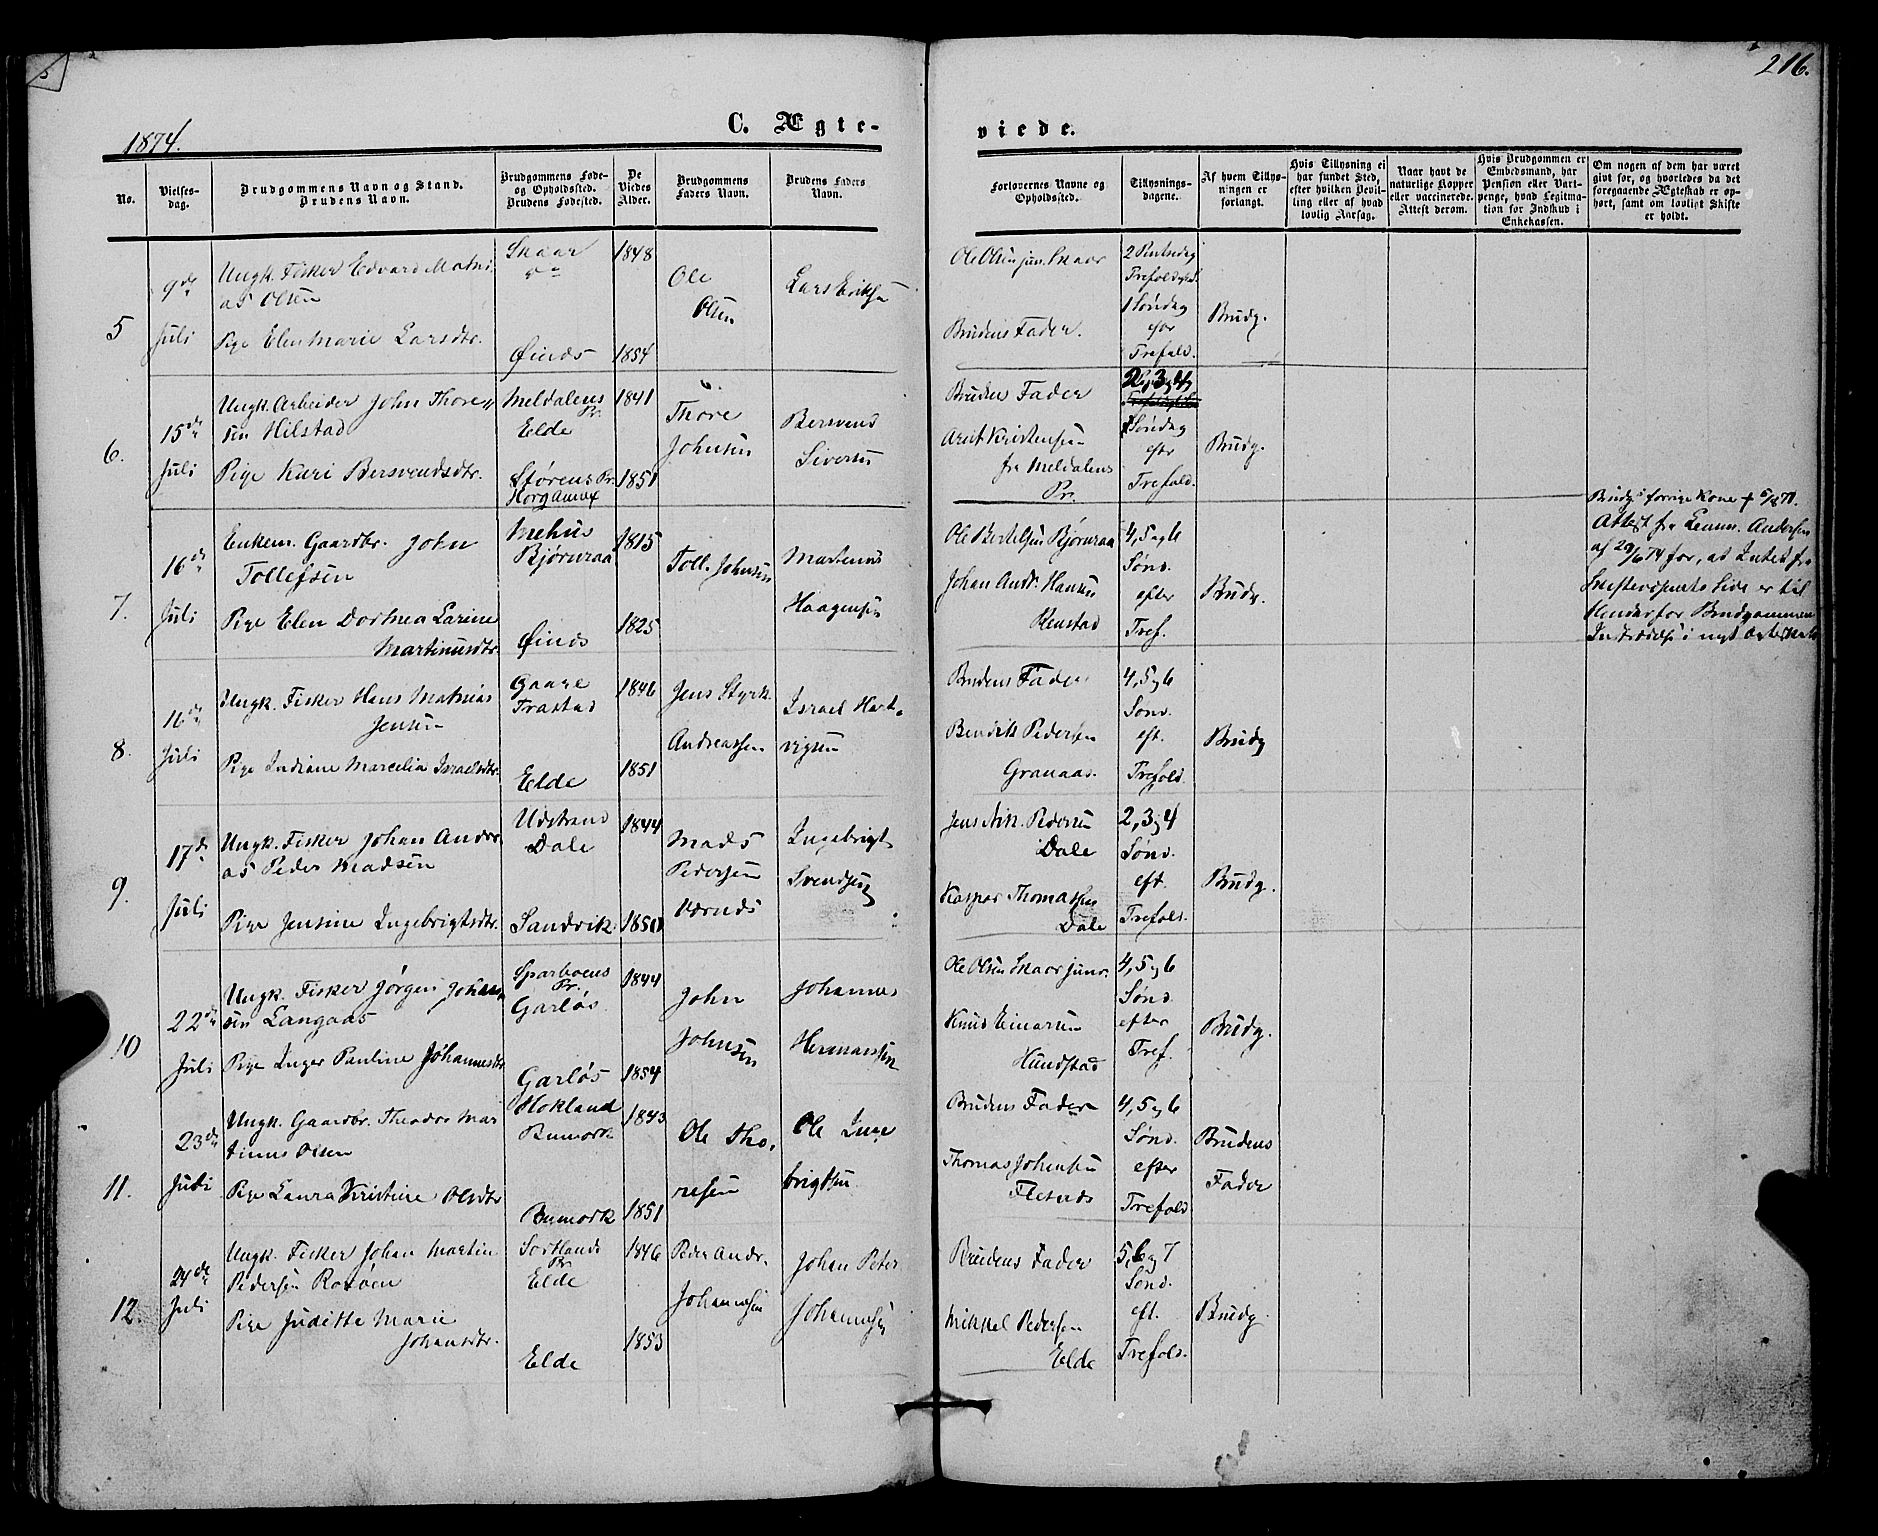 216.
1874.
C. Ægte-
viede.
No.
Vielses-
dag.
Brudgommens Navn og Stand.
Brudens Navn.
Brudgommens Føde-
og Opholdssted.
Brudens Fødested.
De
Viedes
Alder.
Brudgommens
Faders Navn.
Brudens Faders
Navn.
Forlovernes Navne og
Opholdssted.
Tillysnings-
dagene.
Af hvem Tillys-
ningen er
forlangt.
Hvis Tillysning ei
har fundet Sted,
efter hvilken Bevil-
ling eller af hvad
lovlig Aarsag.
Naar havt de
naturlige Kopper
eller vaccinerede.
Attest derom.
Hvis Brudgommen er
Embedsmand, har
Pension eller Vart-
penge, hvad Legitima-
tion for Indskud i
Enkekassen.
Om nogen af dem har været
givt før, og hvorledes da det
foregaaende Ægteskab er op-
hørt, samt om lovligt Skifte
er holdt.
5
9de
Juli
Ungk. Fisker Edvard Mathi
as Olsen
Pige Elen Marie Larsdtr.
Skaar
Øinæs
1848
1854
Ole
Olsen
Lars Eriksen
Ole Olsen jun. Skaar
Brudens Fader.
2 Pintsedag
1 Søndag
efter
Trefold.
Brudg.
6.
15de
Juli
Ungk. Arbeider John Thore
sen Hilstad
Pige Kari Bersvendsdtr.
Meldalens
Pr.
Elde
Størens Pr.
Horg Annex
1841
1851
Thore
Johnsen
Bersvend
Siversen
Brudens Fader
Arnt Kristensen
fra Meldalens
Pr.
2, 3 og 4
Søndag
efter
Trefold.
Brudg.
7.
16de
Juli
Enkem. Gaardbr. John
Tollefsen
Pige Elen Dorthea Larine
Martinusdtr.
Mehus
Bjørnraa
Øinæs
1815
1825
Toll. Johnsen
Martenus
Haagensen
Ole Bertelsen Bjørnraa
Johan Andr. Hansen
Renstad
4, 5 og 6
Sønd.
efter
Tref.
Brudg.
Brudg.s forrige Kone
Attest fra Lensm. Andersen
af 29/6 74 for, at Intet fra
Skifterettens Side er til
Hinder for Brudgommens
Indtrædelse i nyt Ægteskab
8.
16de
Juli
Ungk. Fisker Hans Mathias
Jensen
Pige Indiane Marcelia Israelsdtr.
Gaare
Trastad
Elde
1846
1851
Jens Styrk.
Andreassen
Israel Hart-
vigsen
Brudens Fader
Bendik Pedersen
Granaas.
4, 5 og 6
Sønd.
eft.
Trefold.
Brudg
9.
17de
Juli
Ungk. Fisker Johan Andre
as Peder Madsen
Pige Jensine Ingebrigtsdtr.
Udstrand
Dale
Sandvik
1844
1850
Mads
Pedersen
Værnæs
Ingebrigt
Svendsen
Jens Nik. Pedersen
Dale
Kaspar Thomassen
Dale
2, 3 og 4
Sønd.
eft.
Trefols.
Brudg.
10
22de
Juli
Ungk. Fisker Jørgen Johan
sen Langaas
Pige Inger Pauline Johannesdtr
Sparboens
Pr.
Garløs
Garløs
1844
1854
John
Johnsen
Johannes
Hermansen
Ole Olsen Skaar junr.
Knud Einarsen
Hundstad
4, 5 og 6
Sønd.
efter
Tref.
Brudg.
11.
23de
Juli
Ungk. Gaardbr. Theodor Mar
tinus Olsen
Pige Laura Kristine Olsdtr
Hokland
Bremork
Bremork
1843
1851
Ole Tho-
resen
Ole Inge
brigtsen
Brudens Fader
Thomas Johnsen
Flesnæs
4, 5 og 6
Sønd.
efter
Trefold
Brudens
Fader
12.
24de
Juli
Ungk. Fisker Johan Martin
Pedersen Rotøen
Pige Juditte Marie
Johansdtr.
Sortlands
Pr.
Elde
Elde
1846
1853
Peder Andr.
Johannesen
Johan Peter
Johannesen
Brudens Fader
Mikkel Pedersen
Elde
5, 6 og 7
Sønd.
eft.
Trefols.
Brudg.